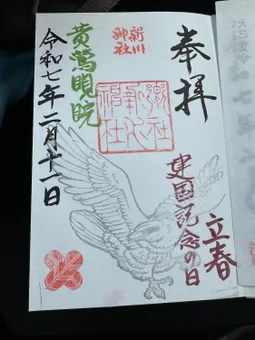 奉拝
立春
建国記念の日
新川
神社
黄鶯睍睆
令和七年二月十一日